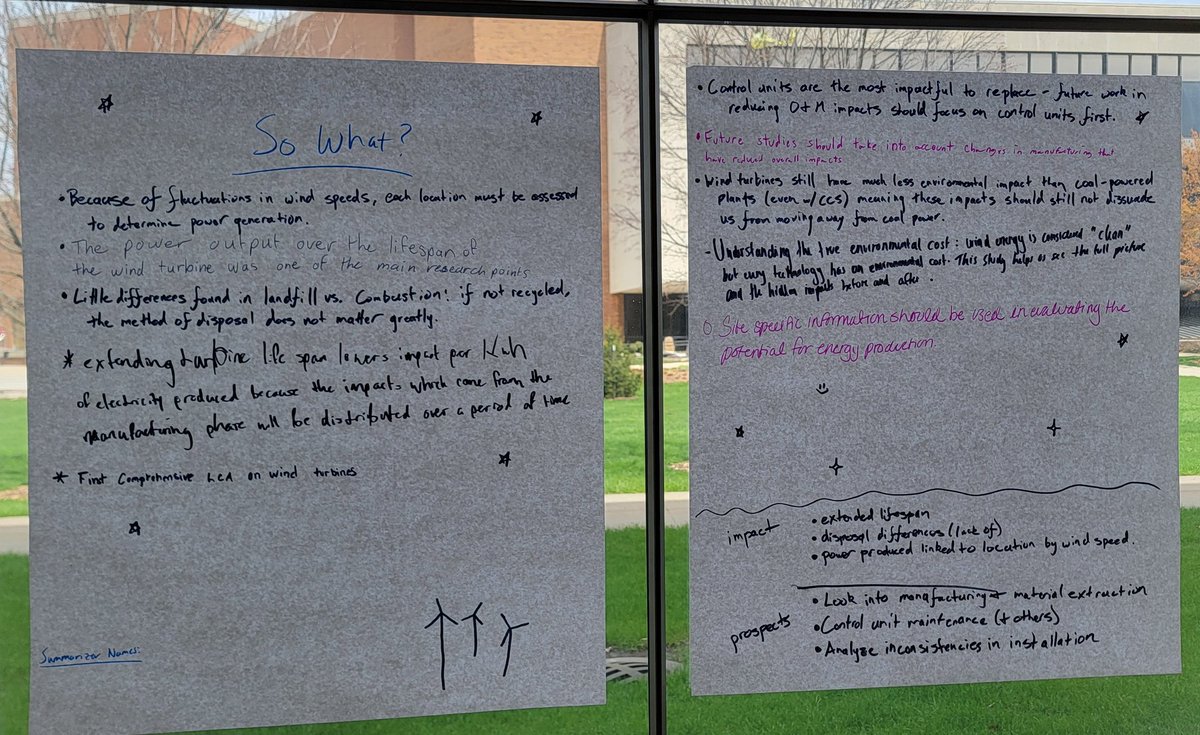 So What?
• Because of fluctuations in wind speeds, each location must be assessed
to determine power generation.
• The power output over the lifespan of
the wind turbine was one of the main research points
• Little differences found in landfill vs. Combustion: if not recycled,
the method of disposal does not matter greatly.
* extending turbine life span lowers impact per Kwh
of electricity produced because the impacts which come from the
manufacturing phase will be distributed over a period of time
* First Comprehensive LCA on wind turbines
Summarizer Names:
• Control units are the most impactful to replace - future work in
reducing O+M impacts should focus on control units first.
• Future studies should take into account changes in manufacturing that
have reduced overall impacts
• Wind turbines still have much less environmental impact than coal-powered
plants (even w/CCS) meaning these impacts should still not dissuade
us from moving away from coal power.
- Understanding the true environmental cost: wind energy is considered "clean"
but every technology has an environmental cost. This study helps us see the full picture
and the hidden impacts before and after.
O Site specific information should be used in evaluating the
potential for energy production.
impact
• extended lifespan
• disposal differences (lack of)
• power produced linked to location by wind speed.
prospects
• Look into manufacturing + material extraction
• Control unit maintenance (+ others)
• Analyze inconsistencies in installation